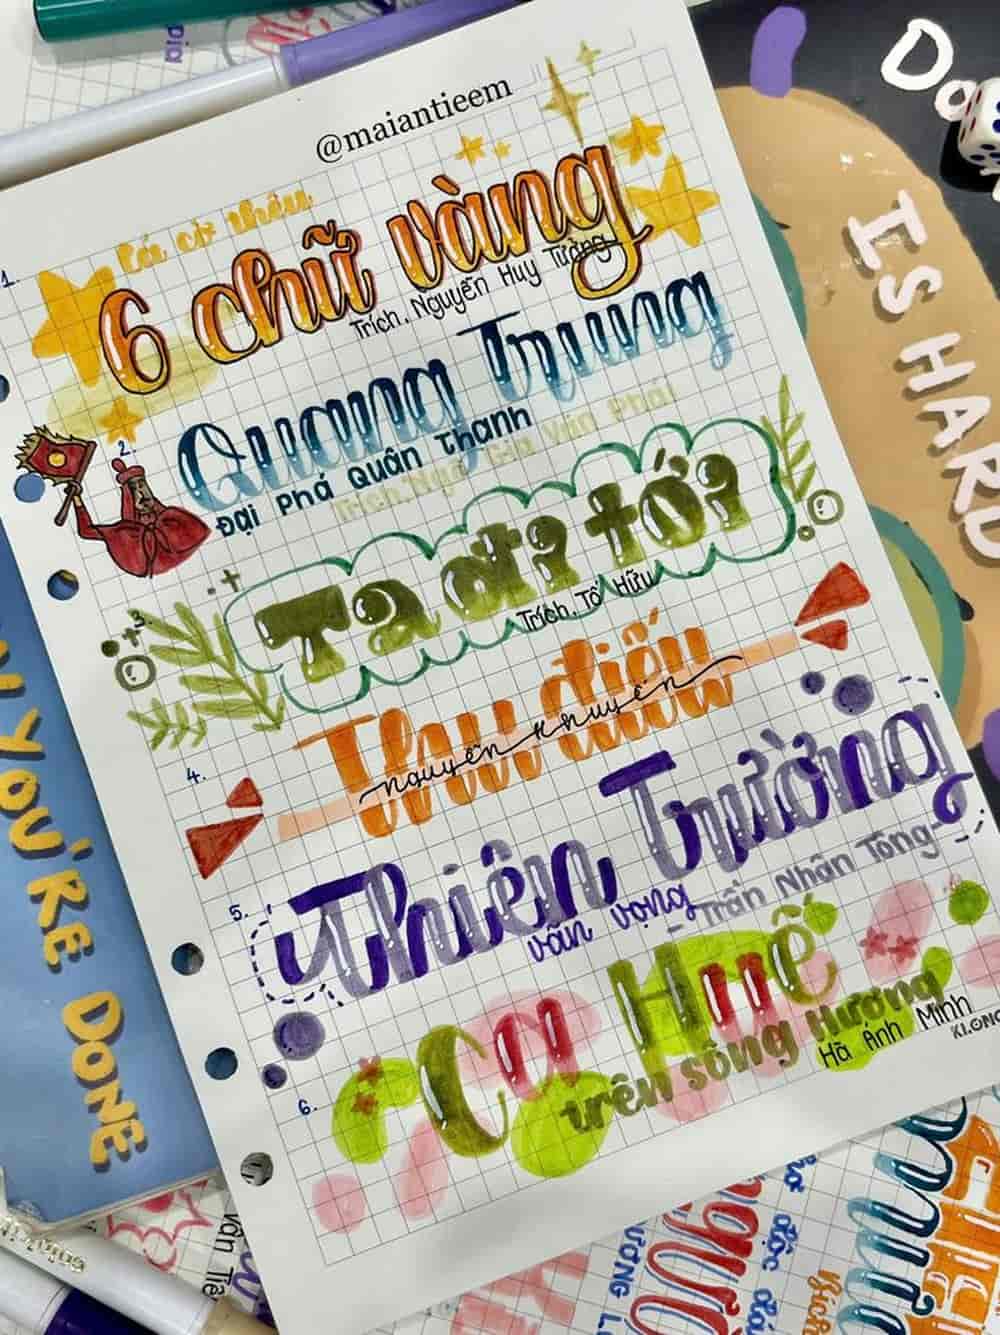 @maiantieem
1.
Lá cờ thêu
6 chữ vàng
Trích. Nguyễn Huy Tưởng
2.
Quang Trung
Đại Phá Quân Thanh
Trích. Ngô Gia Văn Phái
3.
Ta đi tới
Trích. Tố Hữu
4.
Thu điếu
Nguyễn Khuyến
5.
Thiên Trường
vãn vọng
Trần Nhân Tông
6.
Ca Huế
trên sông Hương
Hà Ánh Minh
IS HARD
YOU'RE DONE